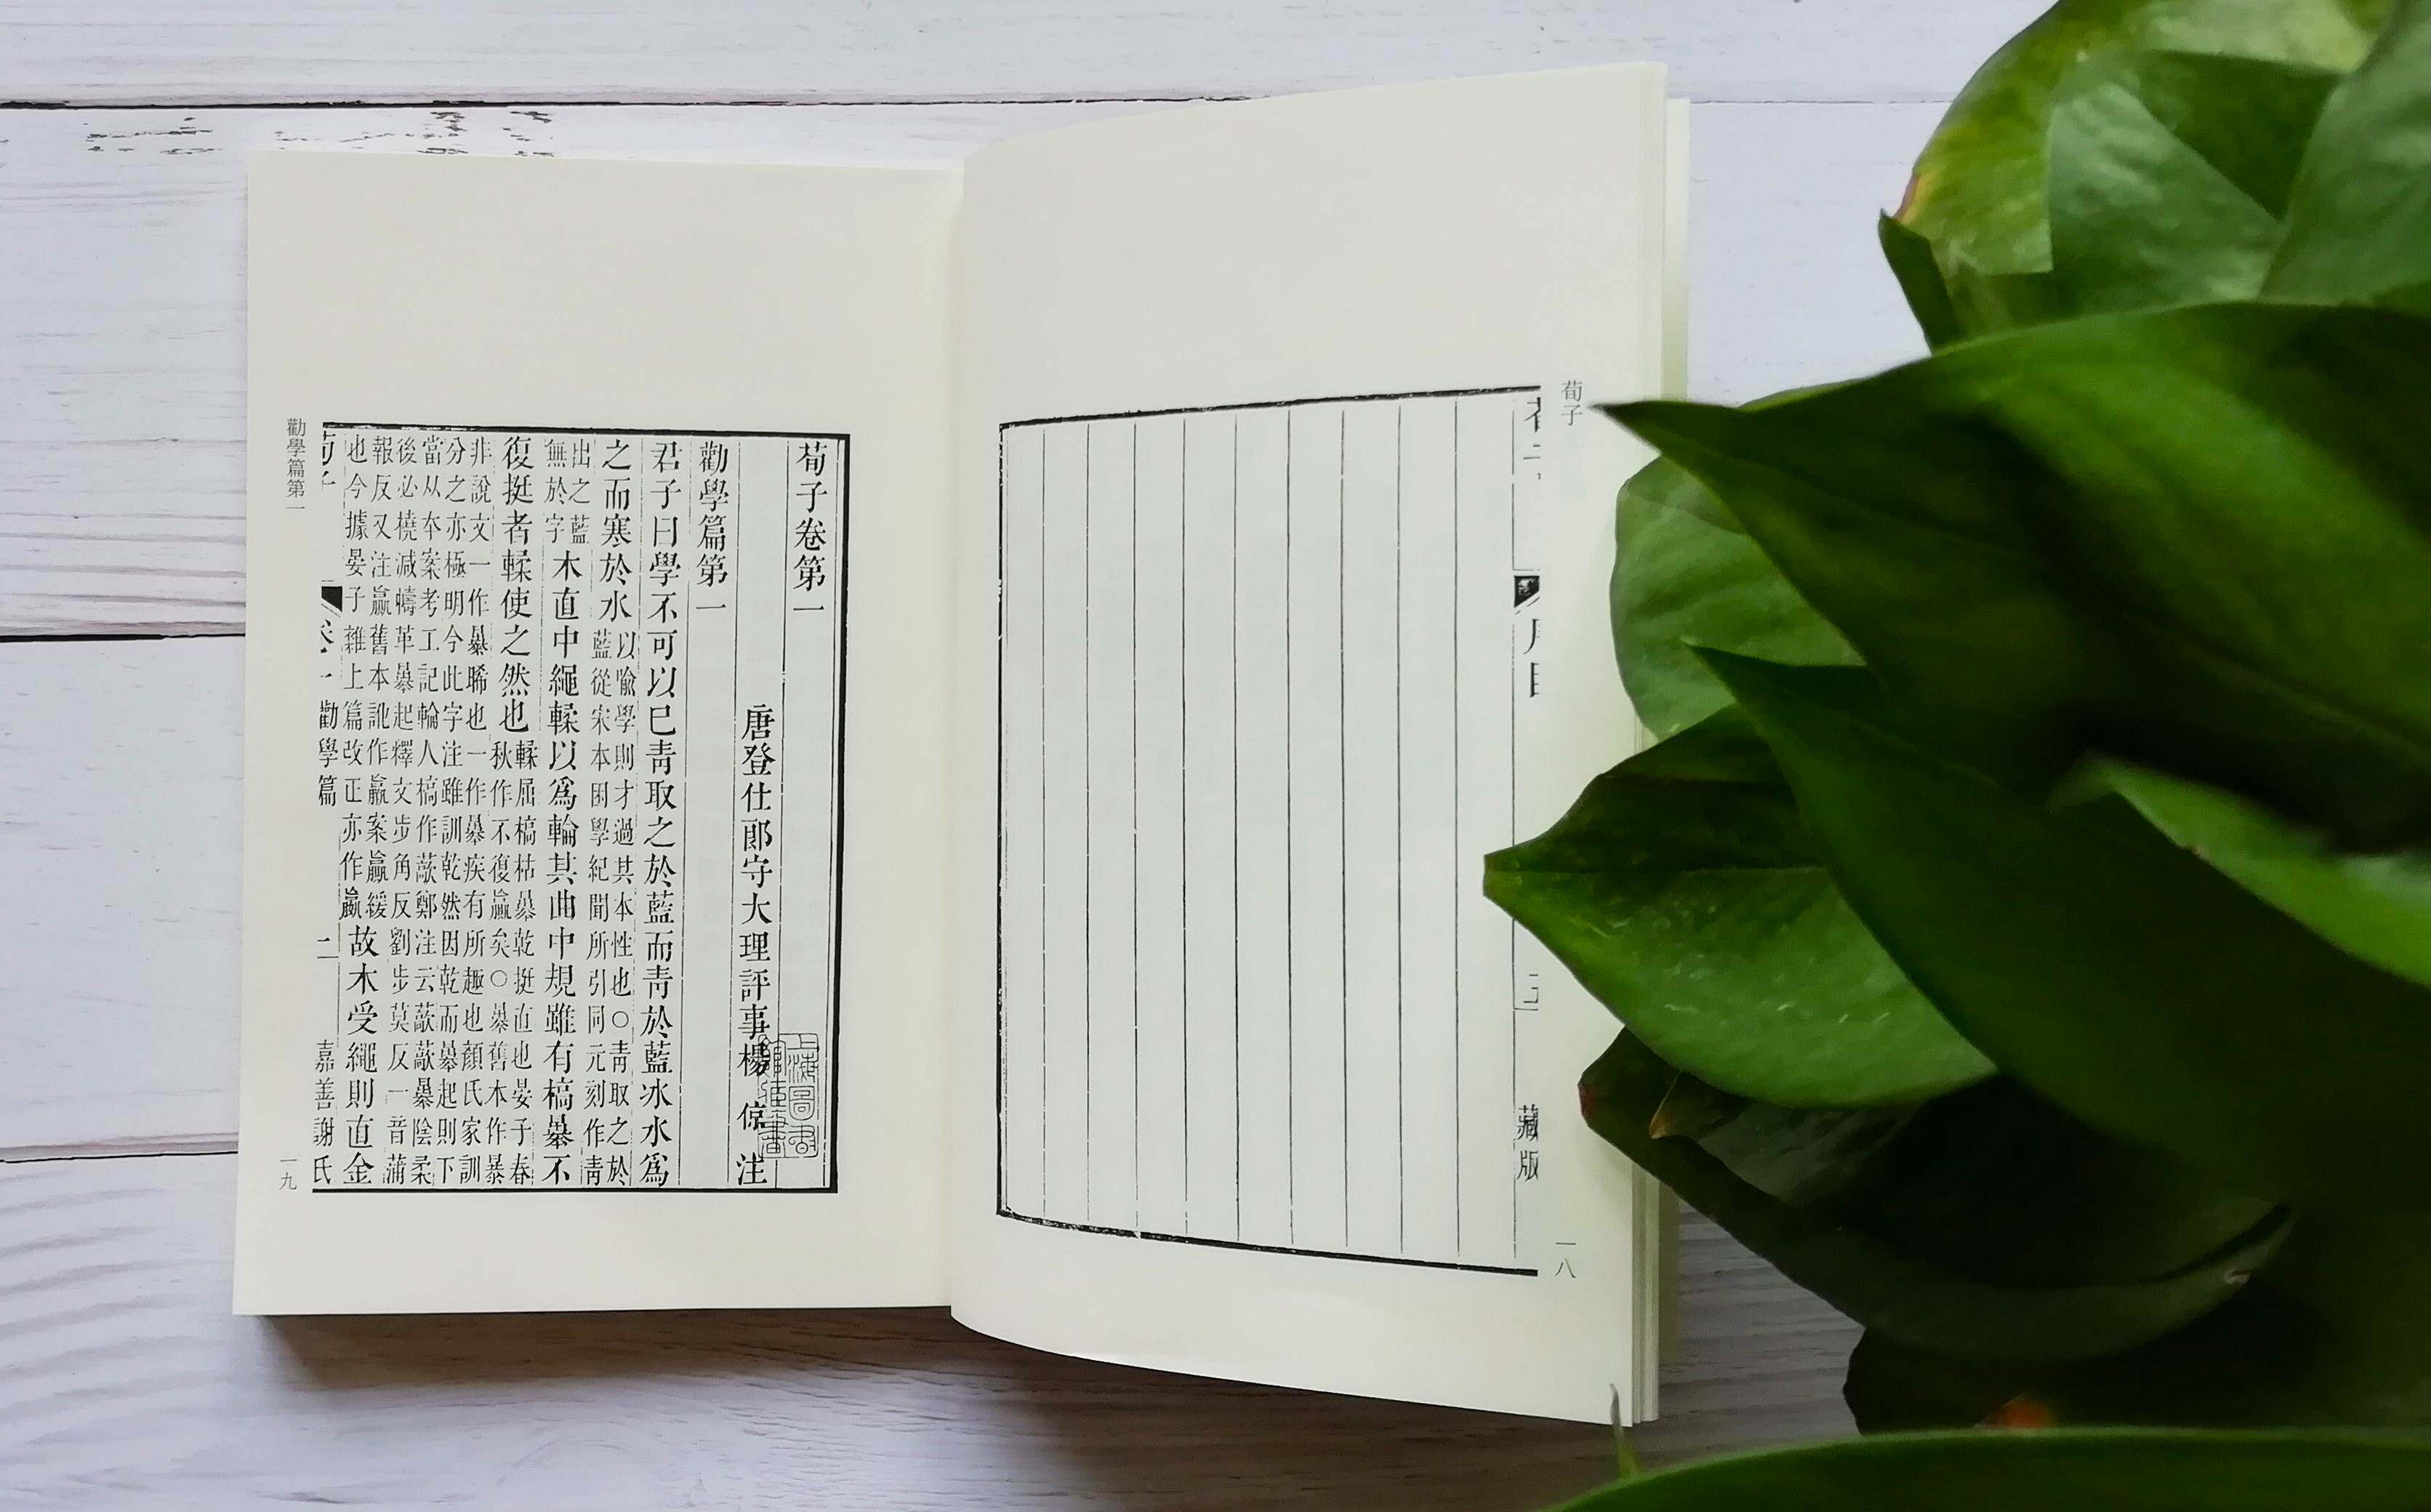 荀子
藏版
一八
荀子卷第一
唐登仕郎守大理評事楊 倞 注
上海圖書
勸學篇第一
君子曰學不可以已靑取之於藍而靑於藍冰水爲
之而寒於水
以喩學則才過其本性也○靑取之於
藍從宋本困學紀聞所引同元刻作靑
出之藍
無於字
木直中繩輮以爲輪其曲中規雖有槁暴不
復挺者輮使之然也
輮屈槁枯暴乾挺直也晏子春
秋作不復贏矣○暴舊本作暴
非說文一作暴晞也一作暴疾有所趣也顏氏家訓
分之亦極明今此字注雖訓乾然因乾而暴起則下
當从本案考工記輪人槁作藃鄭注云藃藃暴陰柔
後必橈減幬革暴起釋文步角反劉步莫反一音蒲
報反又注贏舊本訛作贏案贏緩
也今據晏子雜上篇改正亦作嬴
故木受繩則直金
荀子 卷一 勸學篇 二 嘉善謝氏
勸學篇第一
一九